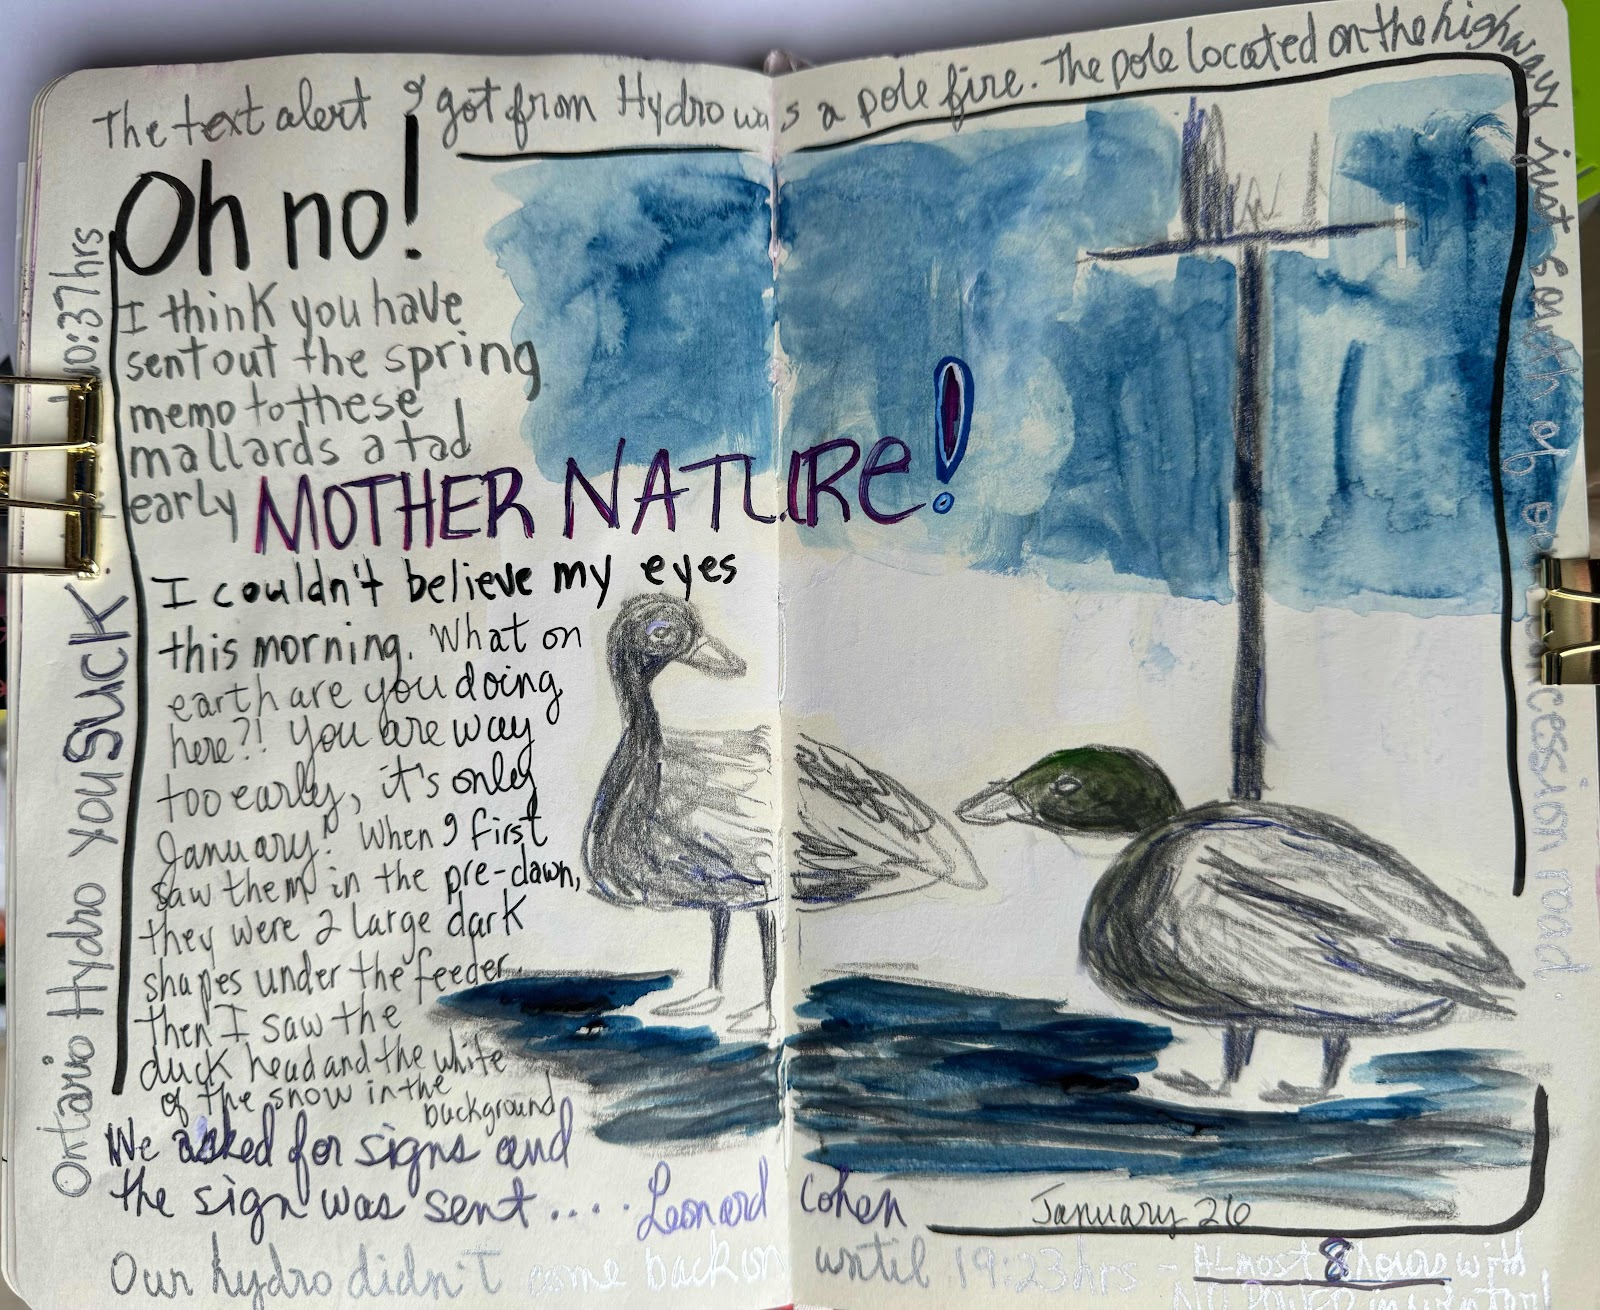 The text alert I got from Hydro was a pole fire. The pole located on the highway just south of our concession road.
Oh no!
I think you have
sent out the spring
memo to these
mallards a tad
early MOTHER NATURE!
I couldn't believe my eyes
this morning. What on
earth are you doing
here?! You are way
too early, it's only
January! When I first
saw them in the pre-dawn,
they were 2 large dark
shapes under the feeder.
Then I saw the
duck head and the white
of the snow in the
background
We asked for signs and
the sign was sent.... Leonard Cohen
January 26
Our hydro didn't come back on until 19:23hrs - Almost 8 hours with
NO POWER in winter!
Ontario Hydro you SUCK
10:37hrs